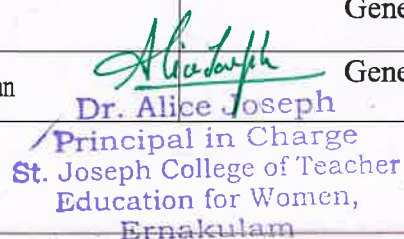 Gene
Alice Joseph
nn Gene
Dr. Alice Joseph
Principal in Charge
St. Joseph College of Teacher
Education for Women,
Ernakulam